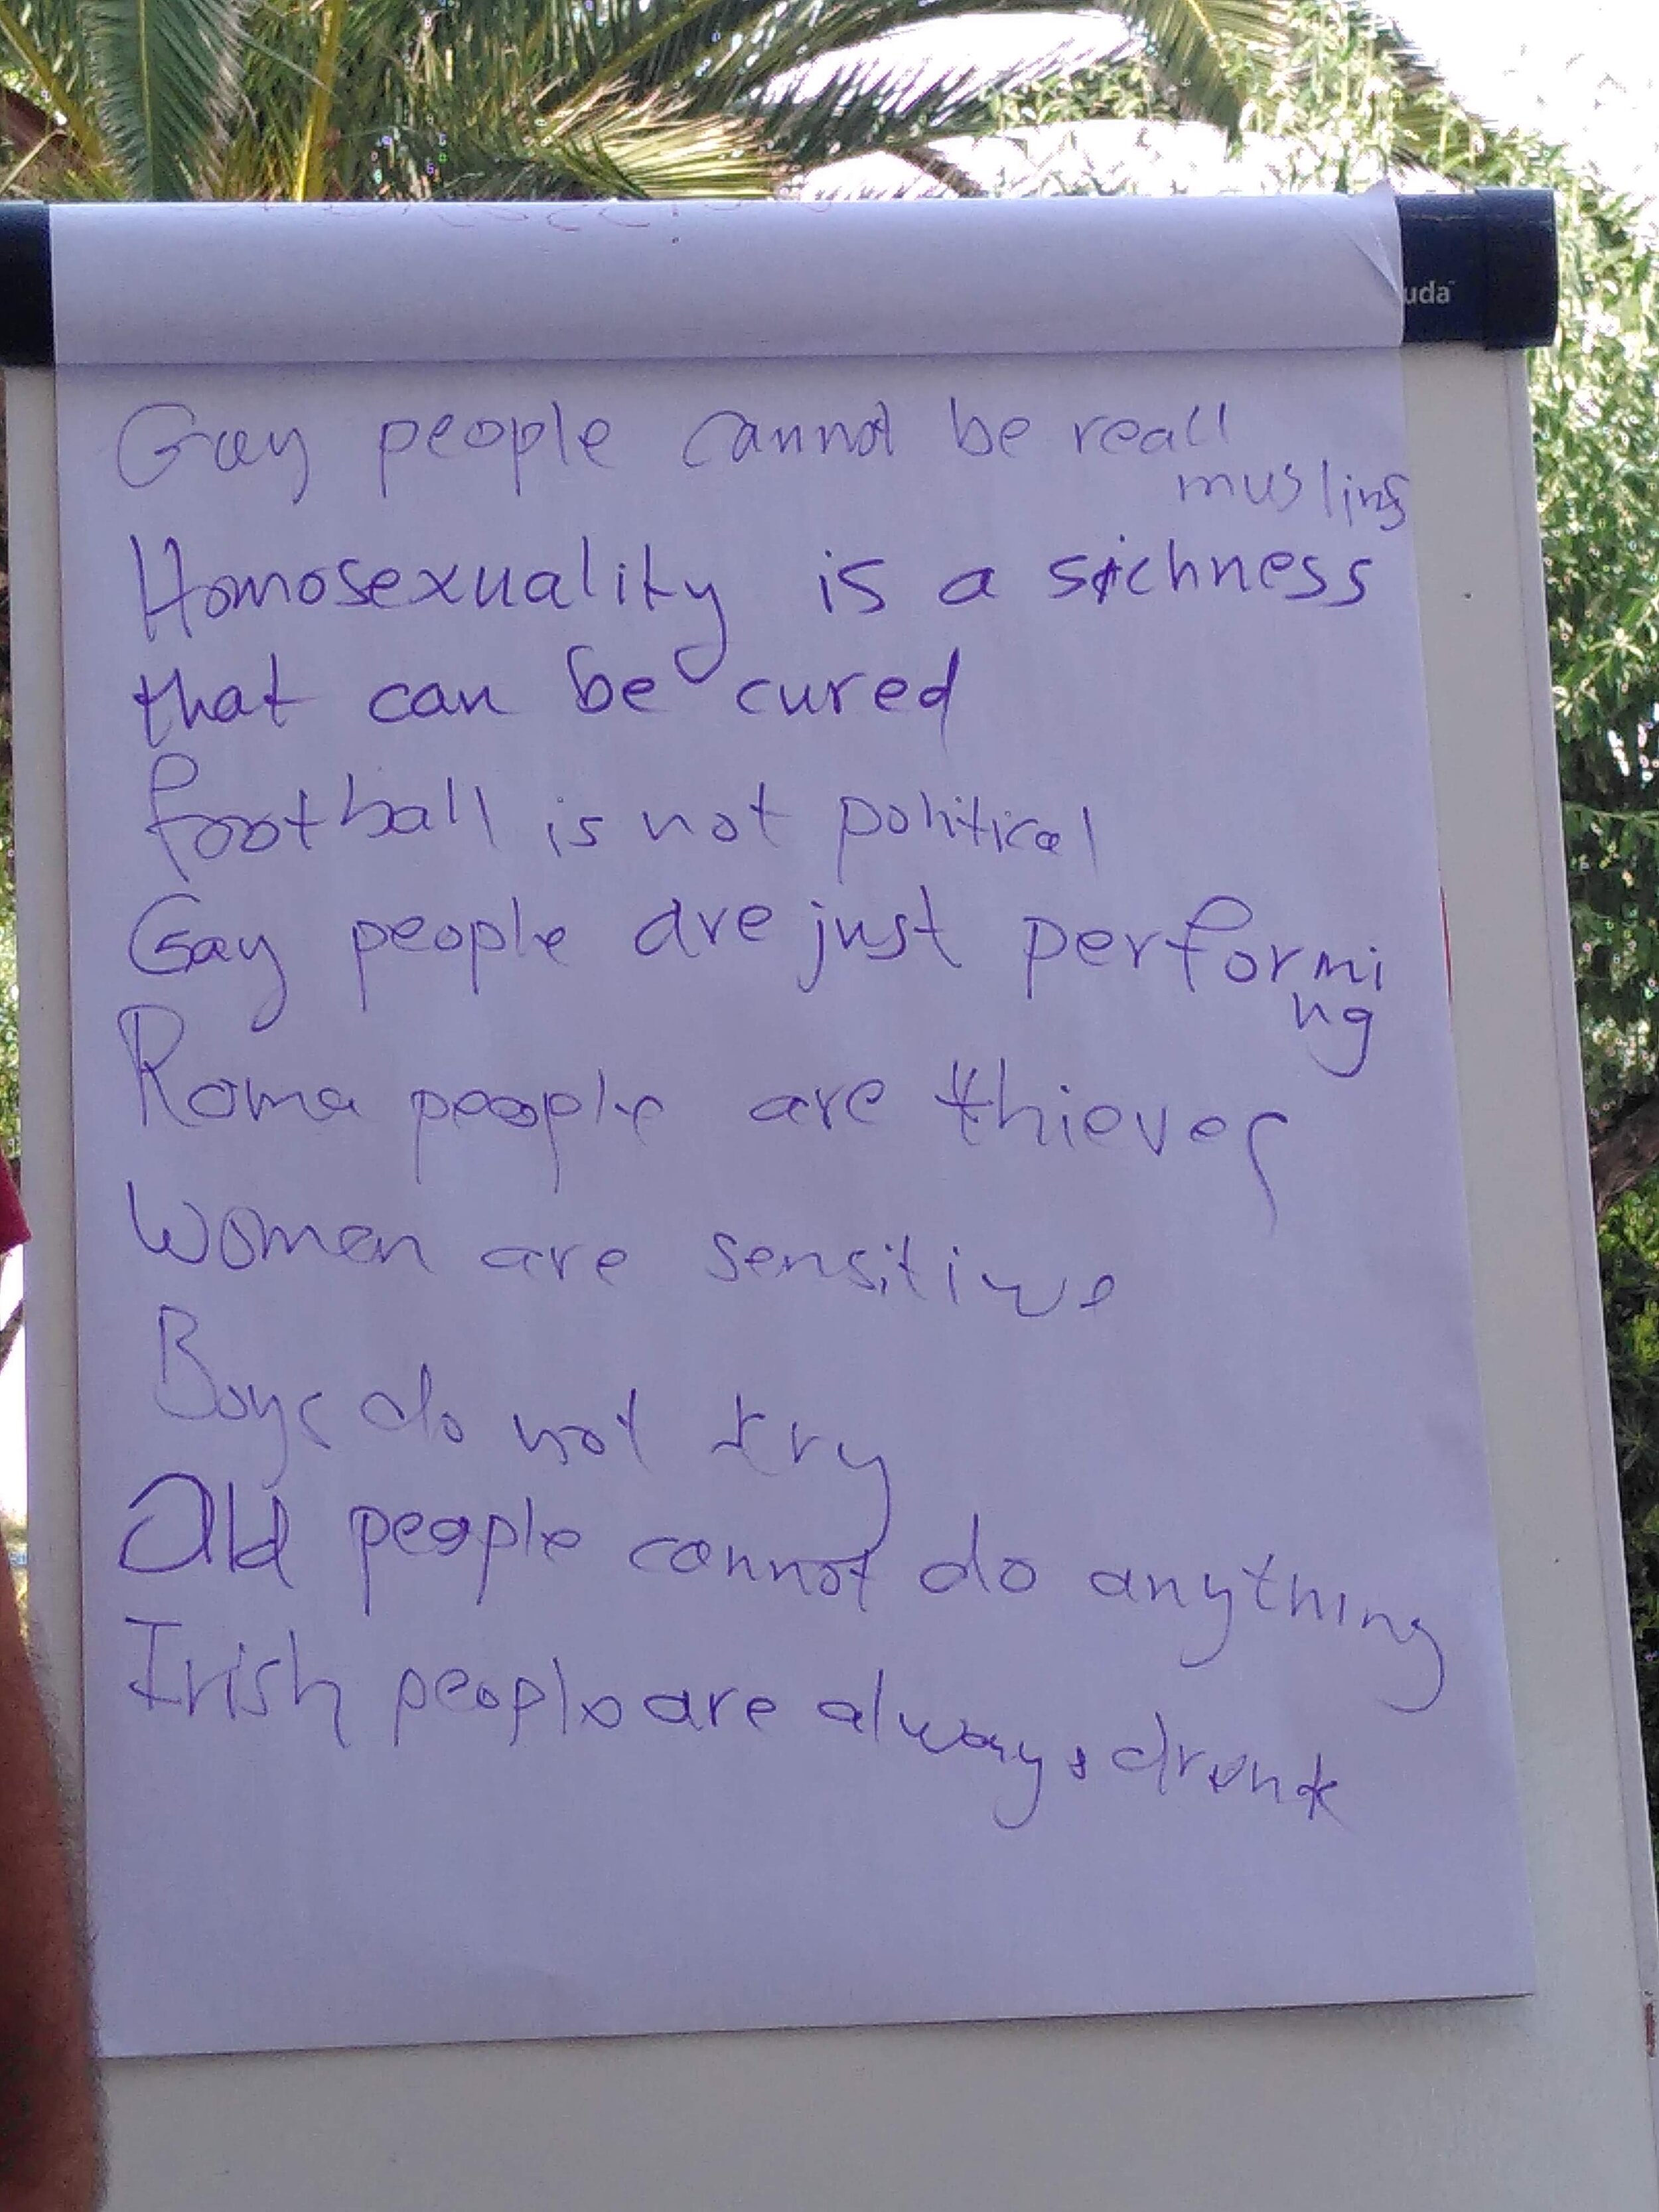 uda
Gay people cannot be reall
muslims
Homosexuality is a sichness
that can be cured
football is not political
Gay people are just performi
ng
Roma people are thieves
Women are sensitive
Boys do not try
Old people cannot do anything
Irish people are always drunk